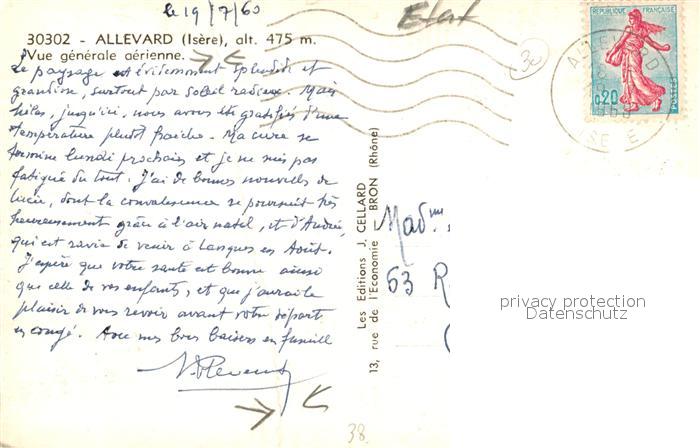 le 19/7/60
Etat
30
30302 - ALLEVARD (Isère), alt. 475 m.
Vue générale aérienne.
Le paysage est évidemment splendide et
grandiose, surtout par soleil radieux. Mais
hélas, jusqu'ici, nous avons été gratifiés d'une
température plutôt fraîche. Ma cure se
termine lundi prochain et je ne suis pas
fatiguée du tout. J'ai de bonnes nouvelles de
Lucie, dont la convalescence se poursuit très
heureusement grâce à l'air natal, et d'Andrée,
qui est ravie de venir à Langres en Août.
J'espère que votre santé est bonne ainsi
que celle de vos enfants, et que j'aurai le
plaisir de vous revoir avant votre départ
en congé. Avec mes bons baisers en famille
Les Editions J. CELLARD
13, rue de l'Economie - BRON (Rhône)
REPUBLIQUE FRANÇAISE
0,20
POSTES
ALLEVARD
ISERE
Mad
63 R
privacy protection
Datenschutz
38